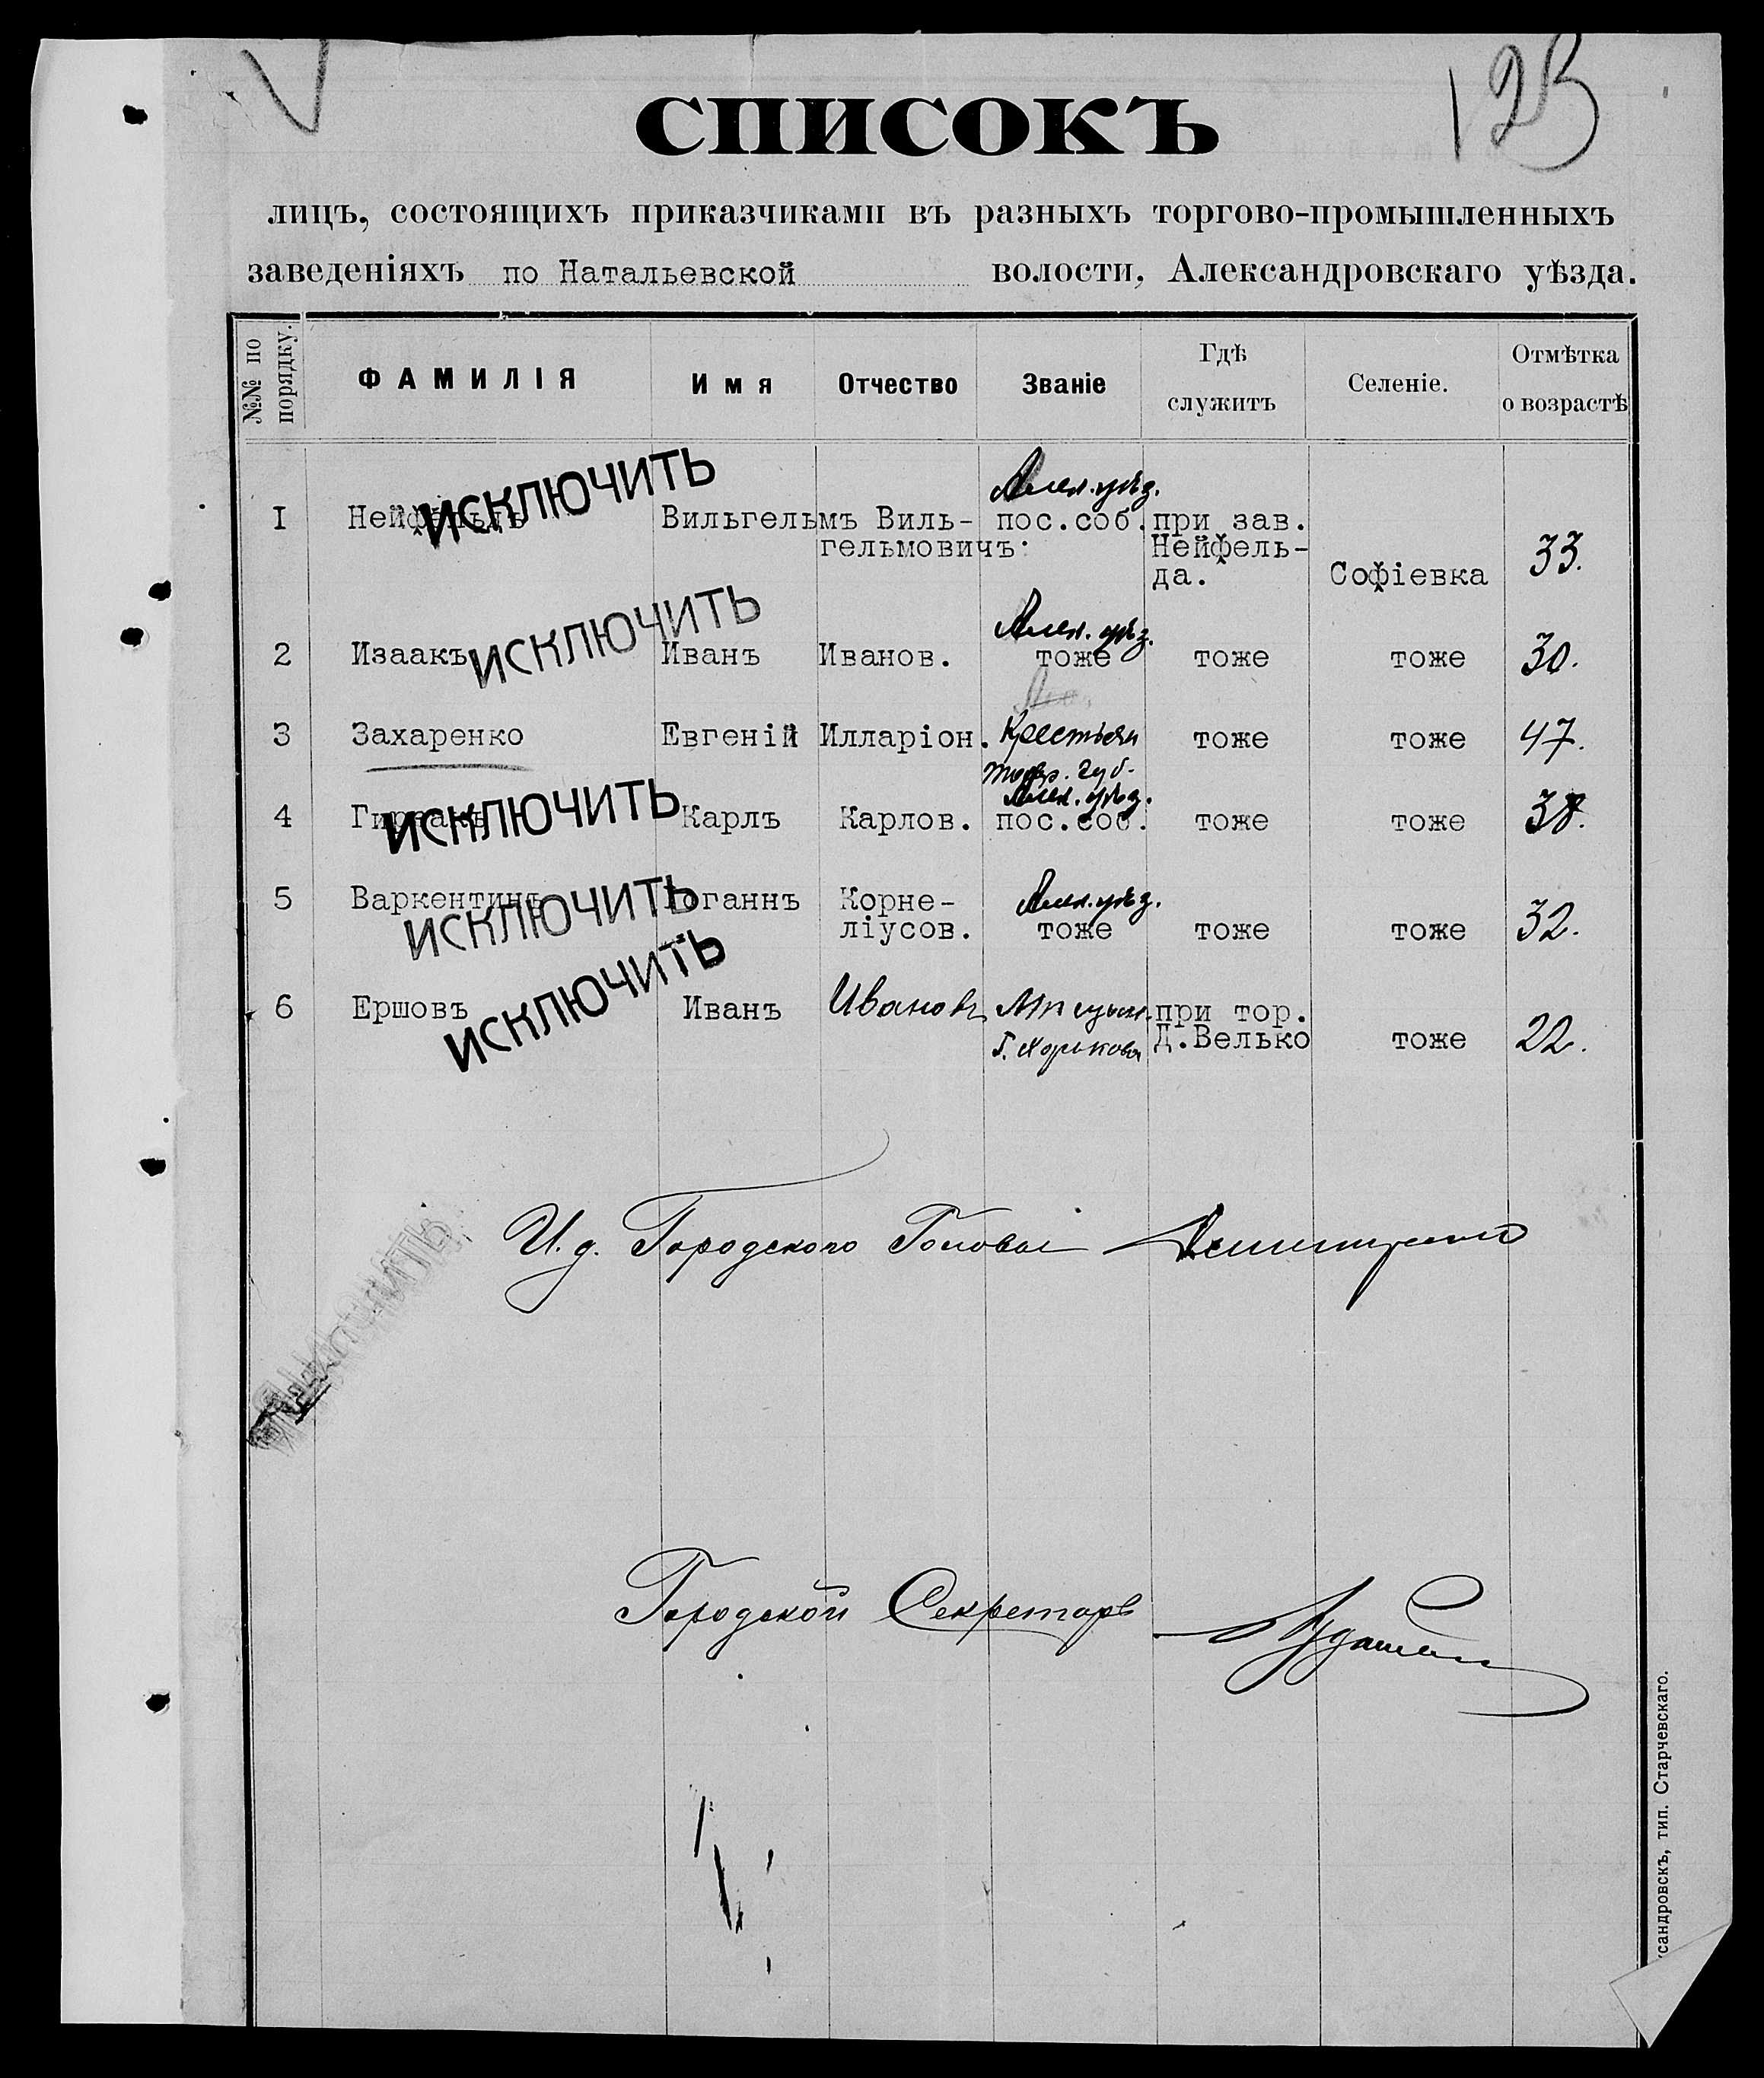 123
СПИСОКЪ
лицъ, состоящихъ приказчиками въ разныхъ торгово-промышленныхъ
заведеніяхъ по Натальевской волости, Александровскаго уѣзда.
№№ по порядку. ФАМИЛІЯ Имя Отчество Званіе Гдѣ служитъ Селеніе. Отмѣтка о возрастѣ
Алек. уѣзд.
I Нейфельдъ ИСКЛЮЧИТЬ Вильгельмъ Виль- пос.соб. при зав.
гельмовичъ: Нейфель- 33.
да. Софіевка
Алек. уѣзд.
2 Изаакъ ИСКЛЮЧИТЬ Иванъ Иванов. тоже тоже тоже 30.
3 Захаренко Евгеній Илларіон. Крестьян тоже тоже 47.
губ.
Алек. уѣзд.
4 ИСКЛЮЧИТЬ Карлъ Карлов. пос.соб. тоже тоже 38.
5 Варкентинъ ИСКЛЮЧИТЬ Іоганнъ Корне- Алек. уѣзд.
ліусов. тоже тоже тоже 32.
6 Ершовъ ИСКЛЮЧИТЬ Иванъ Ивановъ при тор.
г. Харькова Д.Велько тоже 22.
И. д. Городского Головы
Городской Секретарь
сандровскъ, тип. Старчевскаго.